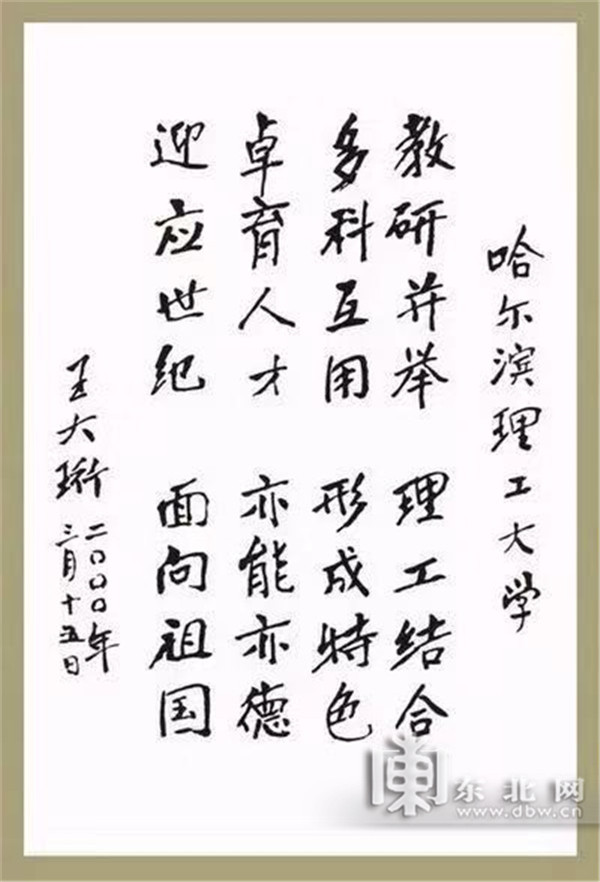 哈尔滨理工大学
教研并举 理工结合
多科互用 形成特色
卓育人才 亦能亦德
迎应世纪 面向祖国
王大珩 二〇〇〇年
三月十五日
东北网
www.dbw.cn